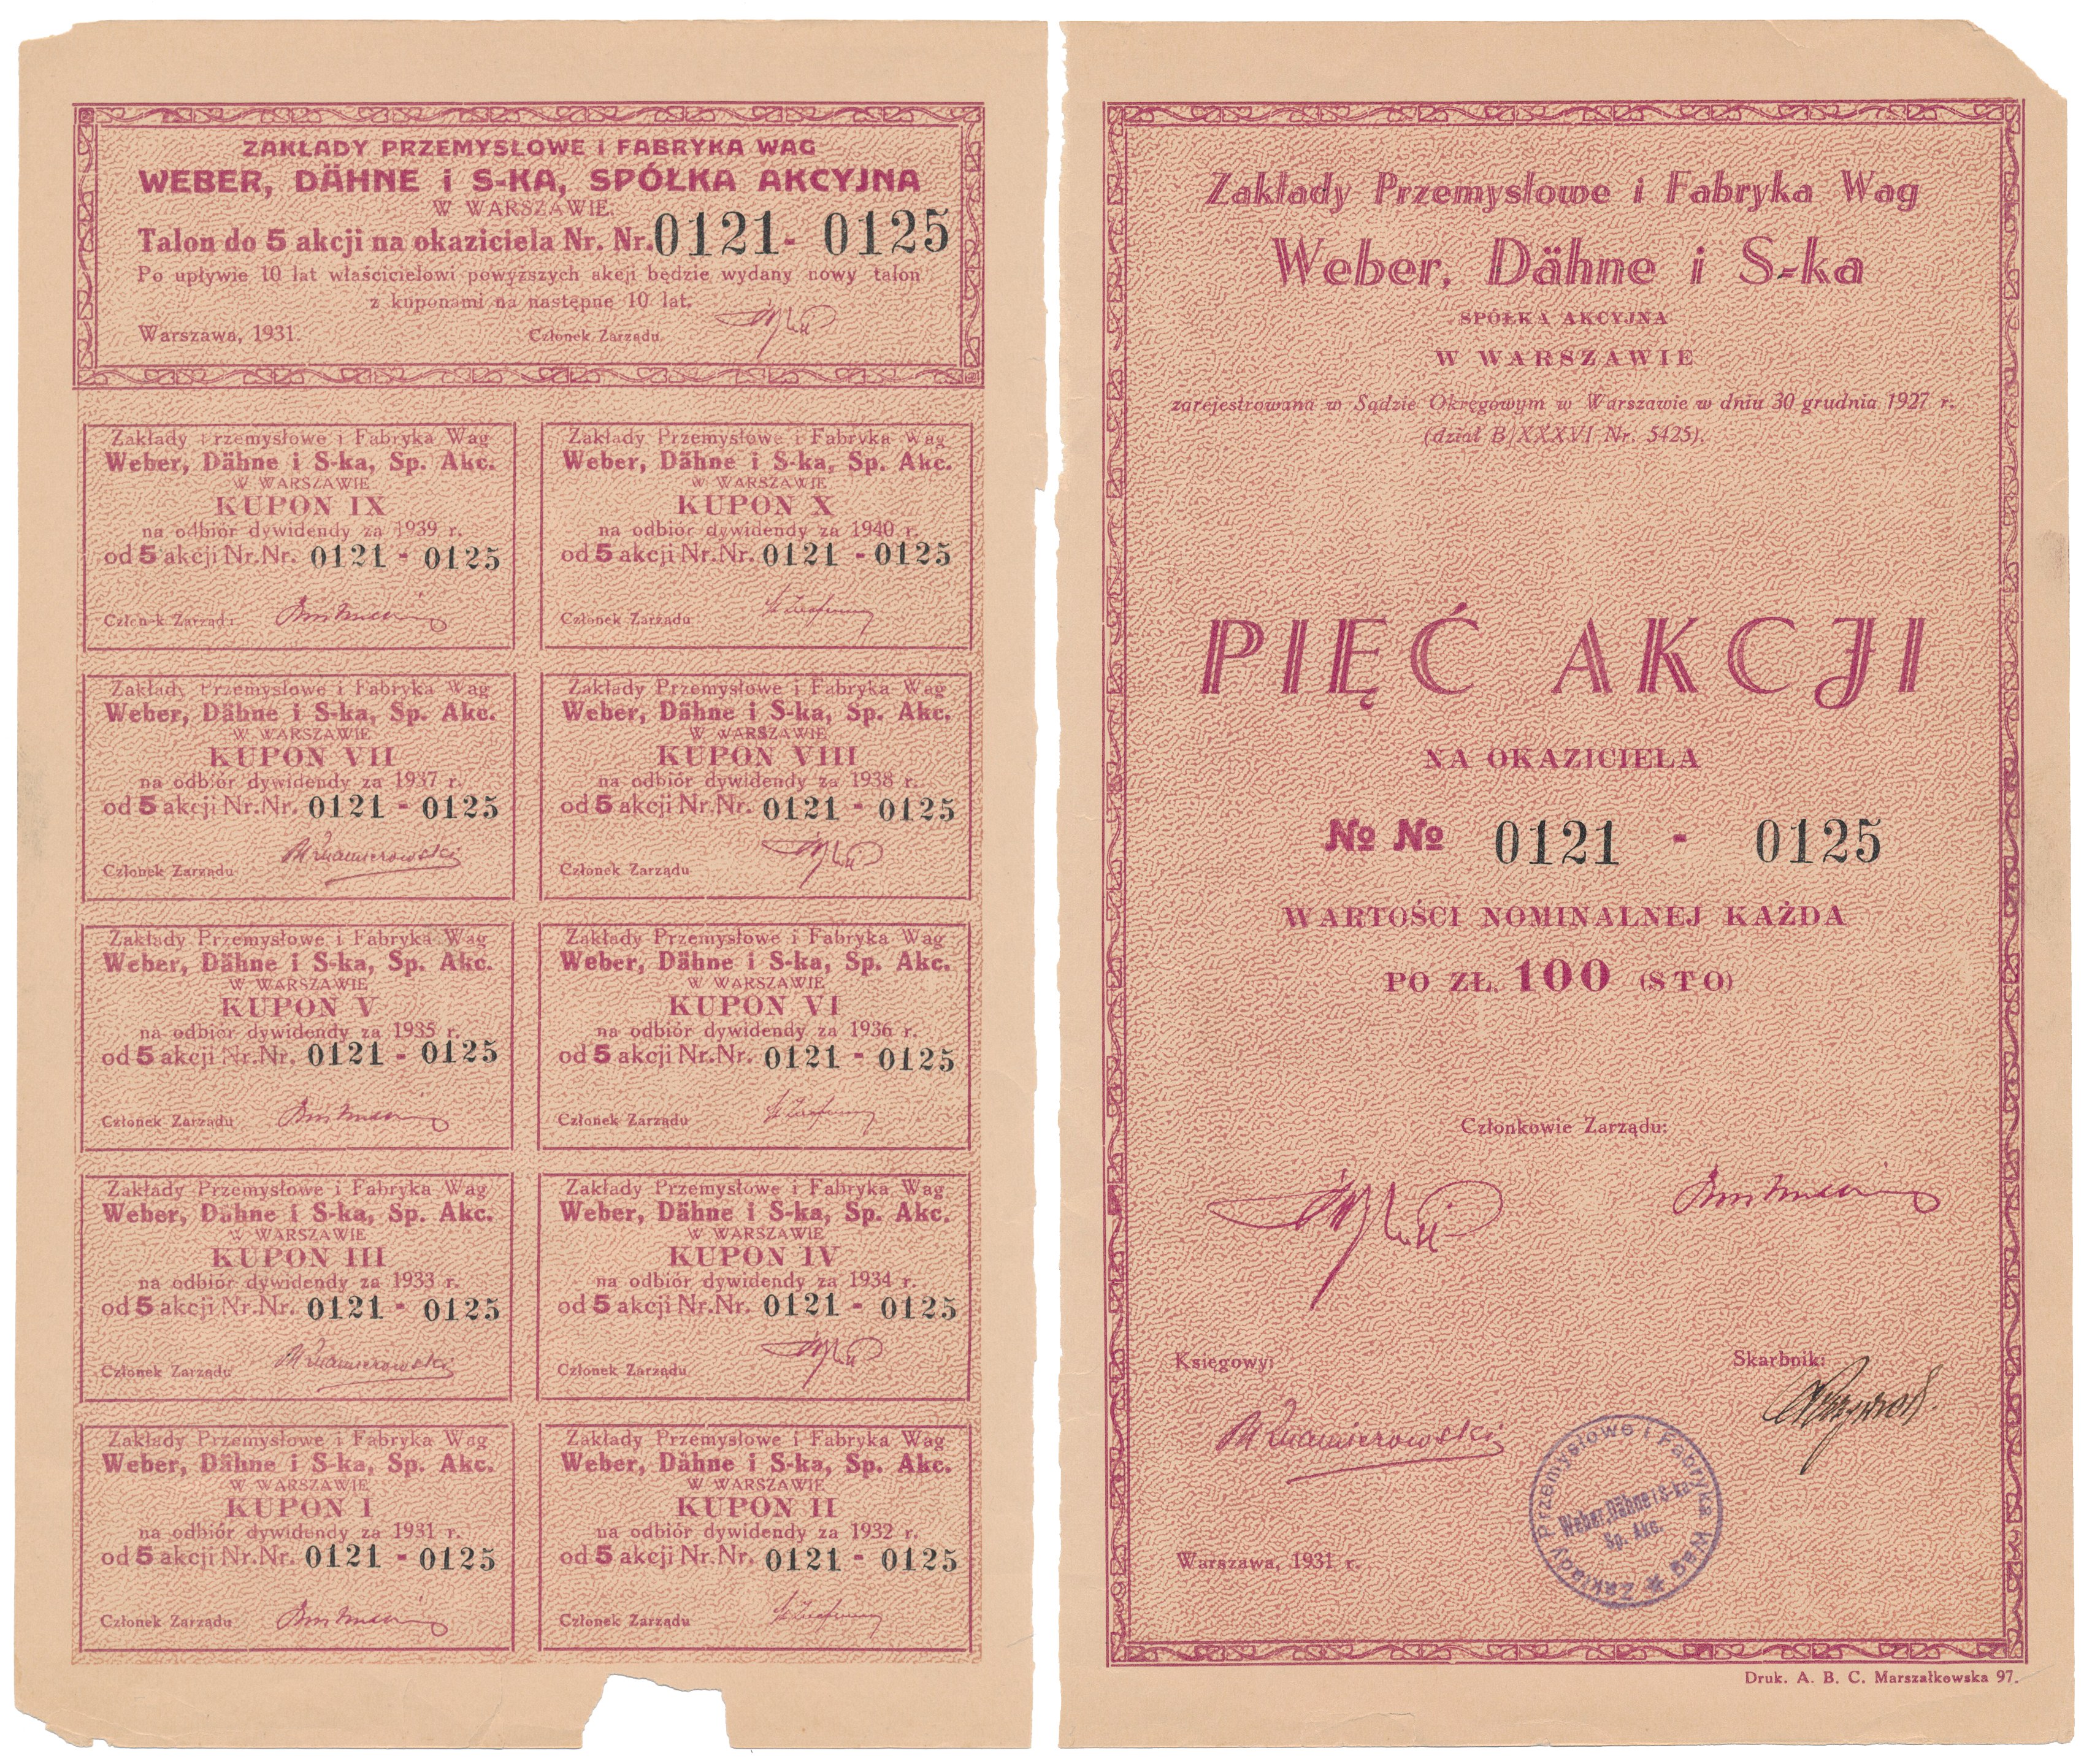 ZAKŁADY PRZEMYSŁOWE i FABRYKA WAG
WEBER, DÄHNE i S-KA, SPÓŁKA AKCYJNA
W WARSZAWIE.
Talon do 5 akcji na okaziciela Nr. Nr. 0121 - 0125
Po upływie 10 lat właścicielowi powyższych akcji będzie wydany nowy talon
z kuponami na następne 10 lat.
Warszawa, 1931. Członek Zarządu
Zakłady Przemysłowe i Fabryka Wag
Weber, Dähne i S-ka, Sp. Akc.
W WARSZAWIE
KUPON IX
na odbiór dywidendy za 1939 r.
od 5 akcji Nr.Nr. 0121 - 0125
Członek Zarządu
Zakłady Przemysłowe i Fabryka Wag
Weber, Dähne i S-ka, Sp. Akc.
W WARSZAWIE
KUPON X
na odbiór dywidendy za 1940 r.
od 5 akcji Nr.Nr. 0121 - 0125
Członek Zarządu
Zakłady Przemysłowe i Fabryka Wag
Weber, Dähne i S-ka, Sp. Akc.
W WARSZAWIE
KUPON VII
na odbiór dywidendy za 1937 r.
od 5 akcji Nr.Nr. 0121 - 0125
Członek Zarządu
Zakłady Przemysłowe i Fabryka Wag
Weber, Dähne i S-ka, Sp. Akc.
W WARSZAWIE
KUPON VIII
na odbiór dywidendy za 1938 r.
od 5 akcji Nr.Nr. 0121 - 0125
Członek Zarządu
Zakłady Przemysłowe i Fabryka Wag
Weber, Dähne i S-ka, Sp. Akc.
W WARSZAWIE
KUPON V
na odbiór dywidendy za 1935 r.
od 5 akcji Nr.Nr. 0121 - 0125
Członek Zarządu
Zakłady Przemysłowe i Fabryka Wag
Weber, Dähne i S-ka, Sp. Akc.
W WARSZAWIE
KUPON VI
na odbiór dywidendy za 1936 r.
od 5 akcji Nr.Nr. 0121 - 0125
Członek Zarządu
Zakłady Przemysłowe i Fabryka Wag
Weber, Dähne i S-ka, Sp. Akc.
W WARSZAWIE
KUPON III
na odbiór dywidendy za 1933 r.
od 5 akcji Nr.Nr. 0121 - 0125
Członek Zarządu
Zakłady Przemysłowe i Fabryka Wag
Weber, Dähne i S-ka, Sp. Akc.
W WARSZAWIE
KUPON IV
na odbiór dywidendy za 1934 r.
od 5 akcji Nr.Nr. 0121 - 0125
Członek Zarządu
Zakłady Przemysłowe i Fabryka Wag
Weber, Dähne i S-ka, Sp. Akc.
W WARSZAWIE
KUPON I
na odbiór dywidendy za 1931 r.
od 5 akcji Nr.Nr. 0121 - 0125
Członek Zarządu
Zakłady Przemysłowe i Fabryka Wag
Weber, Dähne i S-ka, Sp. Akc.
W WARSZAWIE
KUPON II
na odbiór dywidendy za 1932 r.
od 5 akcji Nr.Nr. 0121 - 0125
Członek Zarządu
Zakłady Przemysłowe i Fabryka Wag
Weber, Dähne i S-ka
SPÓŁKA AKCYJNA
W WARSZAWIE
zarejestrowana w Sądzie Okręgowym w Warszawie w dniu 30 grudnia 1927 r.
(dział B/XXXVI Nr. 5425).
PIĘĆ AKCJI
NA OKAZICIELA
№ № 0121 - 0125
WARTOŚCI NOMINALNEJ KAŻDA
PO ZŁ. 100 (STO)
Członkowie Zarządu:
Księgowy: Skarbnik:
Zakłady Przemysłowe i Fabryka Wag
Weber, Dähne i S-ka
Sp. Akc.
Warszawa, 1931 r.
Druk. A. B. C. Marszałkowska 97.